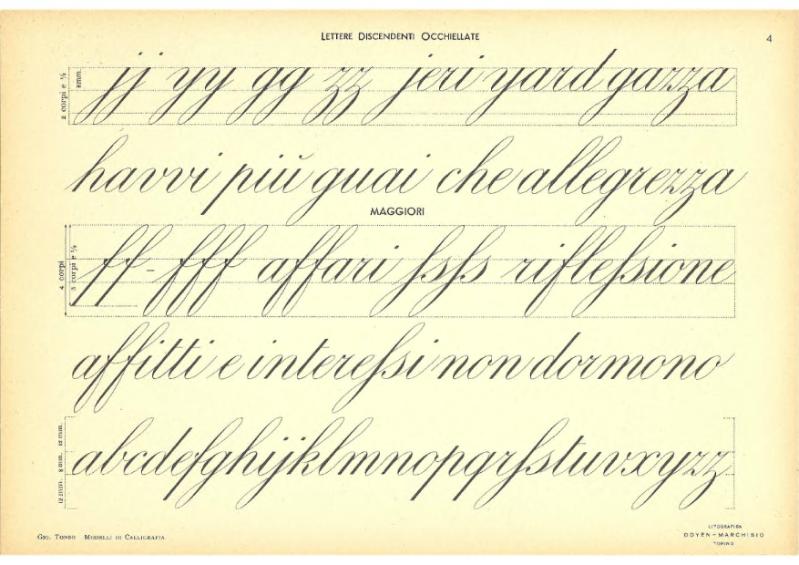 LETTERE DISCENDENTI OCCHIELLATE
4
2 corpi e ½
8mm.
jj yy gg zz jeri yard gazza
havvi più guai che allegrezza
MAGGIORI
4 corpi
3 corpi e ½
ff - fff affari ſsſs rifleſsione
affitti e intereſsi non dormono
12 mm. 8 mm. 12 mm.
abcdefghijklmnopqrſstuvxyzz
GIO. TONSO MODELLI DI CALLIGRAFIA
LITOGRAFICA
DOYEN-MARCHISIO
TORINO